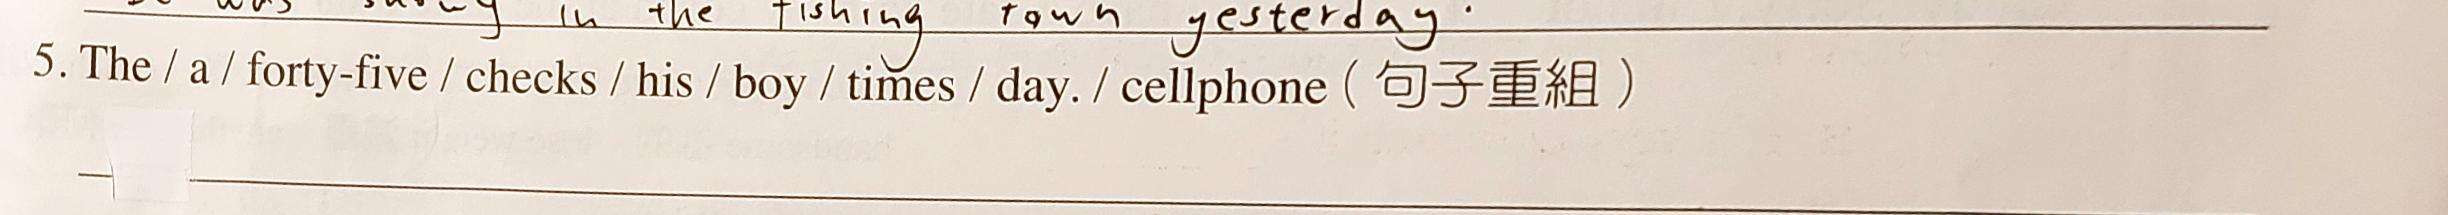 was in the fishing town yesterday.
5. The / a / forty-five / checks / his / boy / times / day. / cellphone (句子重組)